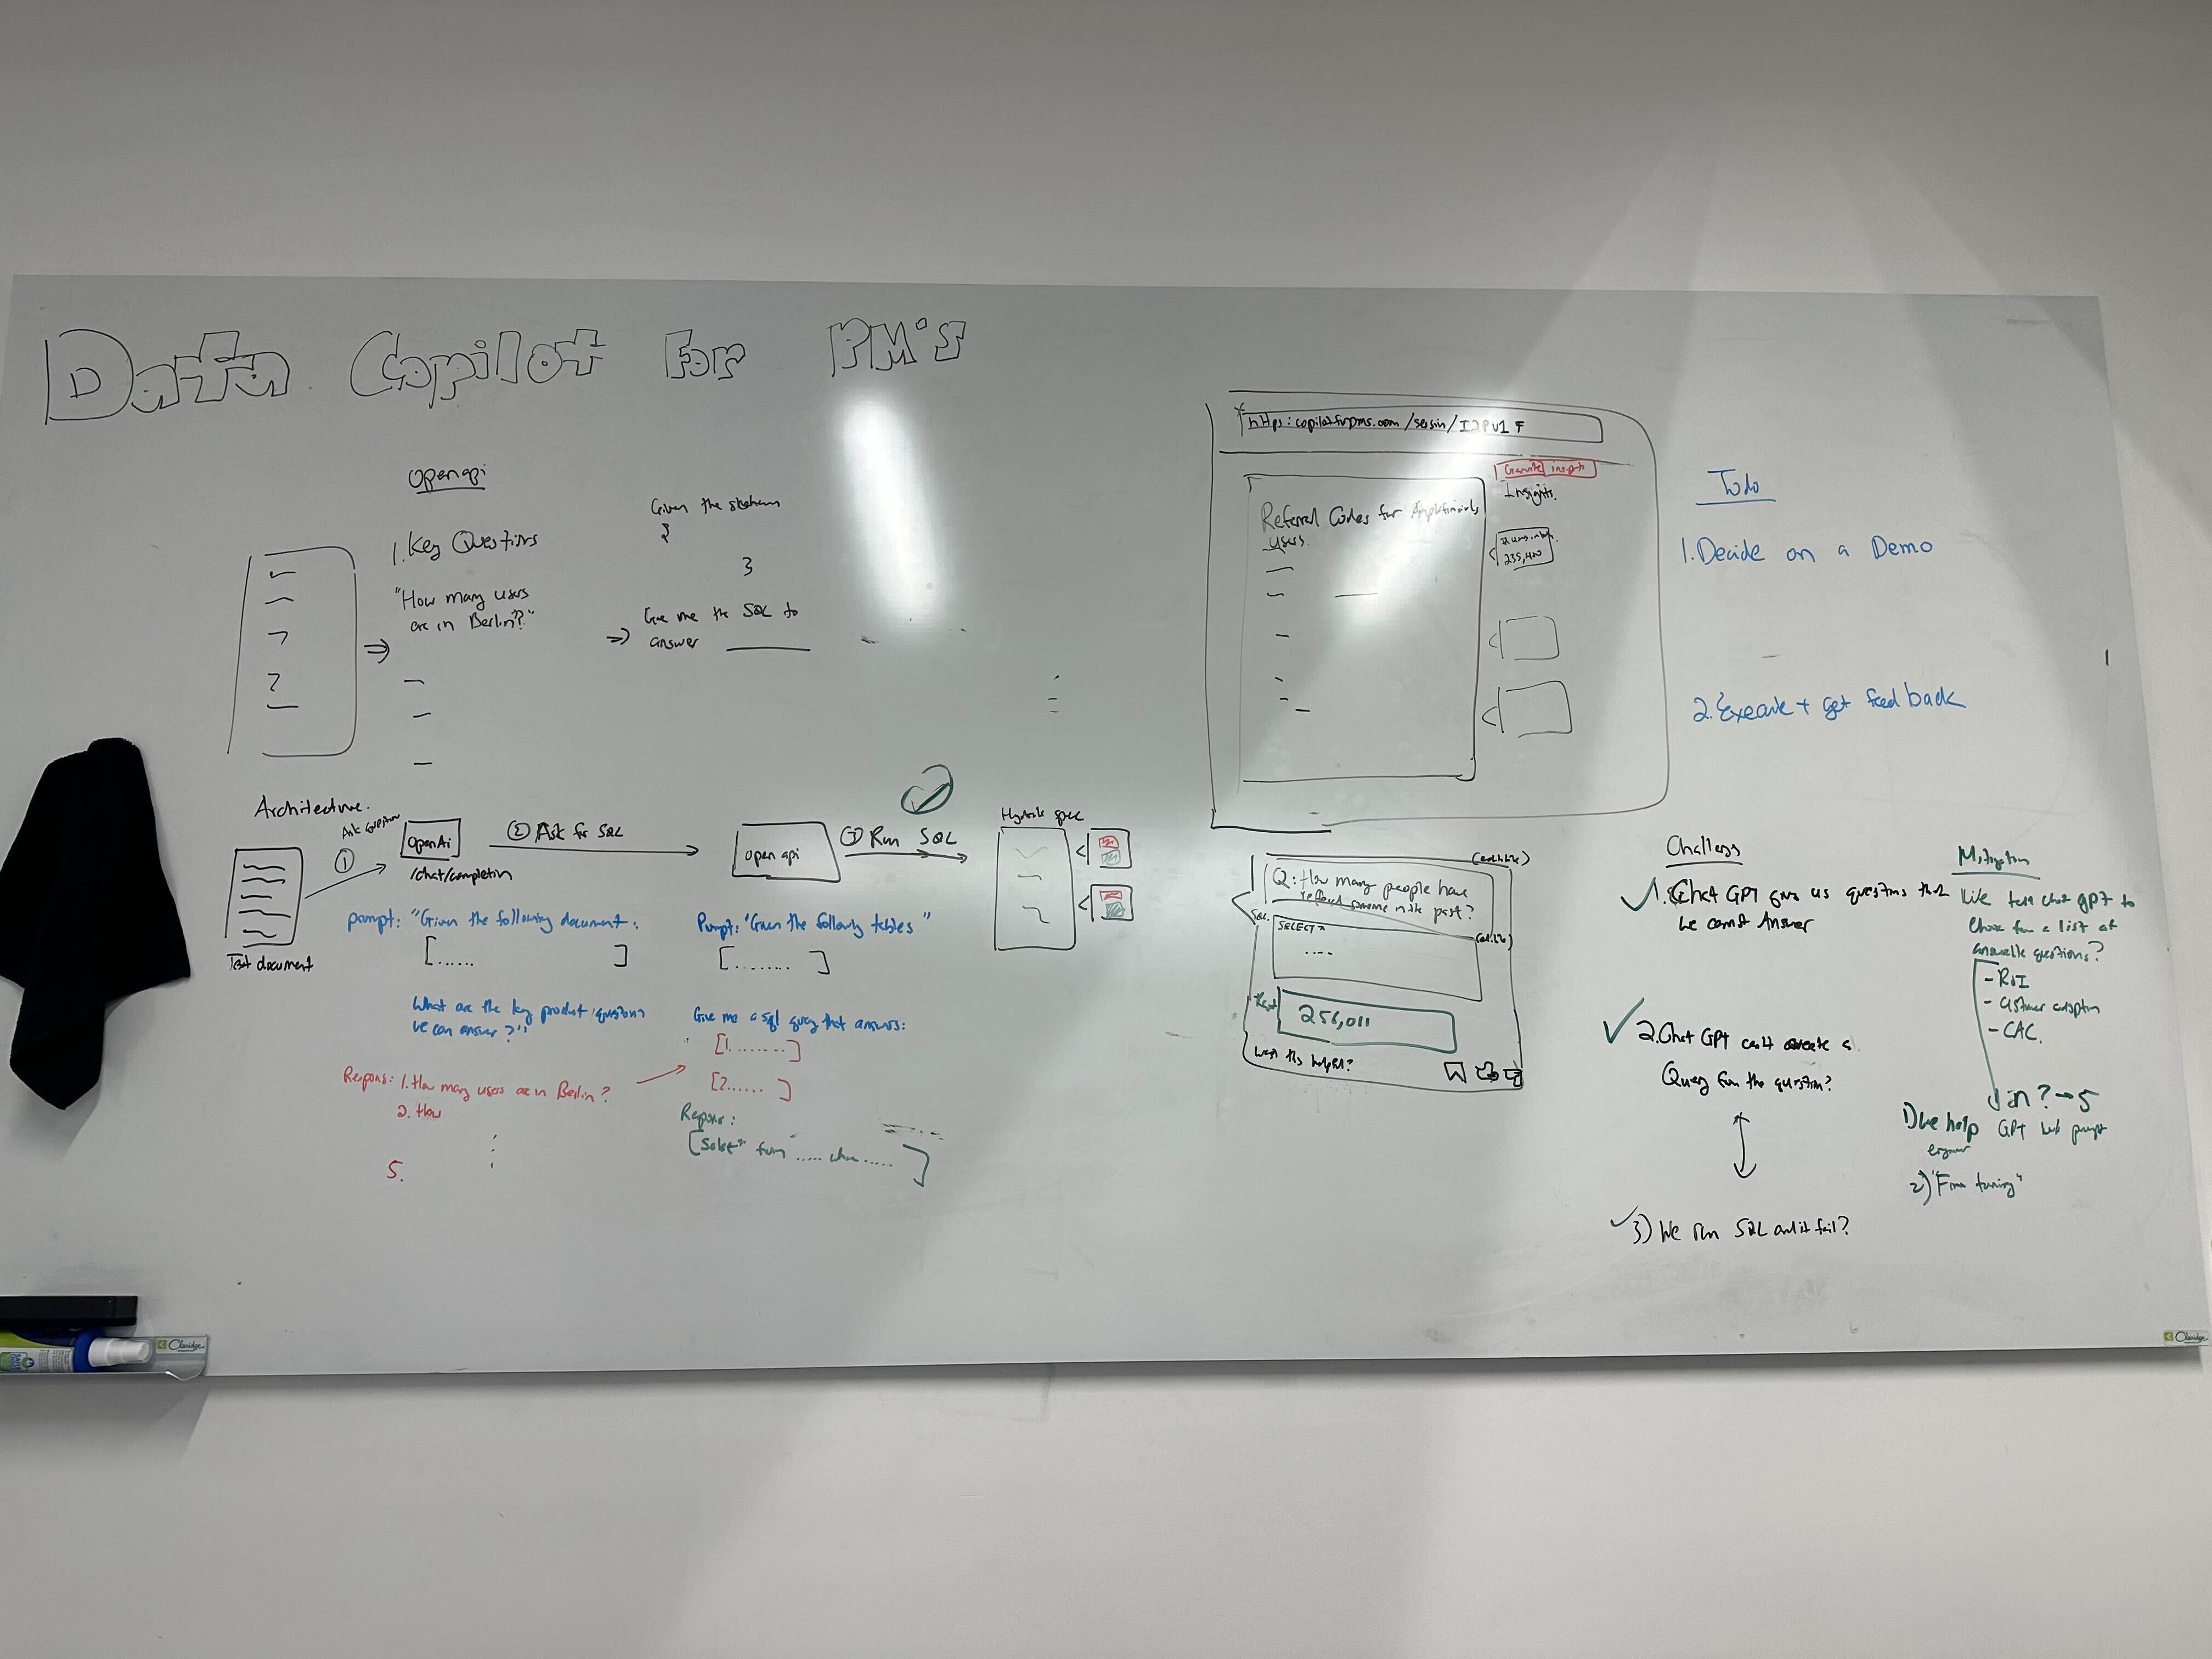 Data Copilot For PM's
Openapi
1. Key Questions
"How many users
are in Berlin?"
Given the
{
}
Give me the SQL to
answer
Architecture.
Text document
①
OpenAi
/chat/completion
② Ask for SQL
open api
③ Run SQL
spec
prompt: "Given the following document:
[...... ]
What are the key product questions
we can answer?"
Respons: 1. How many users are in Berlin?
2. How
5.
Prompt: "Given the following tables"
[........ ]
Give me a sql query that answers:
[1. ........]
[2...... ]
Respons:
[Select* from ..... where ...... ]
https: copilotforpms.com /
Generate insights
Insights.
Referral Codes for
Users.
235,400
Q: How many people have
referred someone in the past?
SQL:
SELECT *
....
(editable)
Result
256,011
Was this helpful?
Todo
1. Decide on a Demo
2. Execute + get feedback
Challenges
1. Chat GPT gives us questions that
we cannot Answer
2. Chat GPT can't create a
Query for the question?
3) We run SQL and it fail?
Mitigation
We tell chat gpt to
chose from a list of
answerable questions?
- ROI
- Customer adoption
- CAC.
in ? → 5
1) We help GPT with prompt
2) "Fine tuning"
Claridge
Claridge